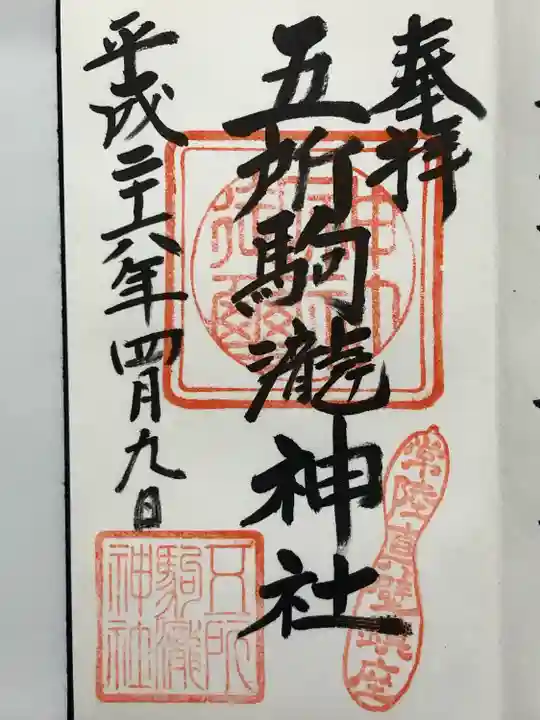 奉拝
五所駒瀧神社
平成二十六年四月九日
五所
駒瀧
神社
常陸真壁鎮座